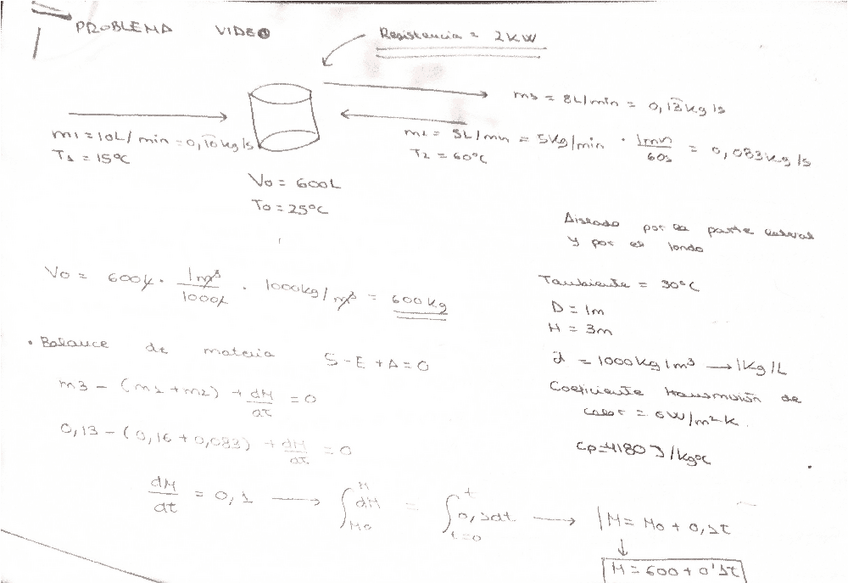 PROBLEMA VIDEO
Resistencia = 2KW
m3 = 8L/min = 0,13kg/s
m1 = 10L/min = 0,16kg/s
T1 = 15ºC
m2 = 5L/min = 5kg/min · 1min/60s = 0,083kg/s
T2 = 60ºC
V0 = 600L
T0 = 25ºC
Aislado por la parte lateral
y por el fondo
V0 = 600L · 1m³/1000L · 1000kg/m³ = 600kg
Tambiente = 30ºC
D = 1m
H = 3m
d = 1000kg/m³ → 1kg/L
• Balance de materia S-E+A=0
Coeficiente transmisión de
calor = 6W/m²·K.
m3 - (m1+m2) + dM/dt = 0
Cp=4180J/kgºC
0,13 - (0,16+0,083) + dM/dt = 0
dM/dt = 0,1 → ∫M0^M dM = ∫t=0^t 0,1dt → M = M0 + 0,1t
↓
M = 600 + 0'1t